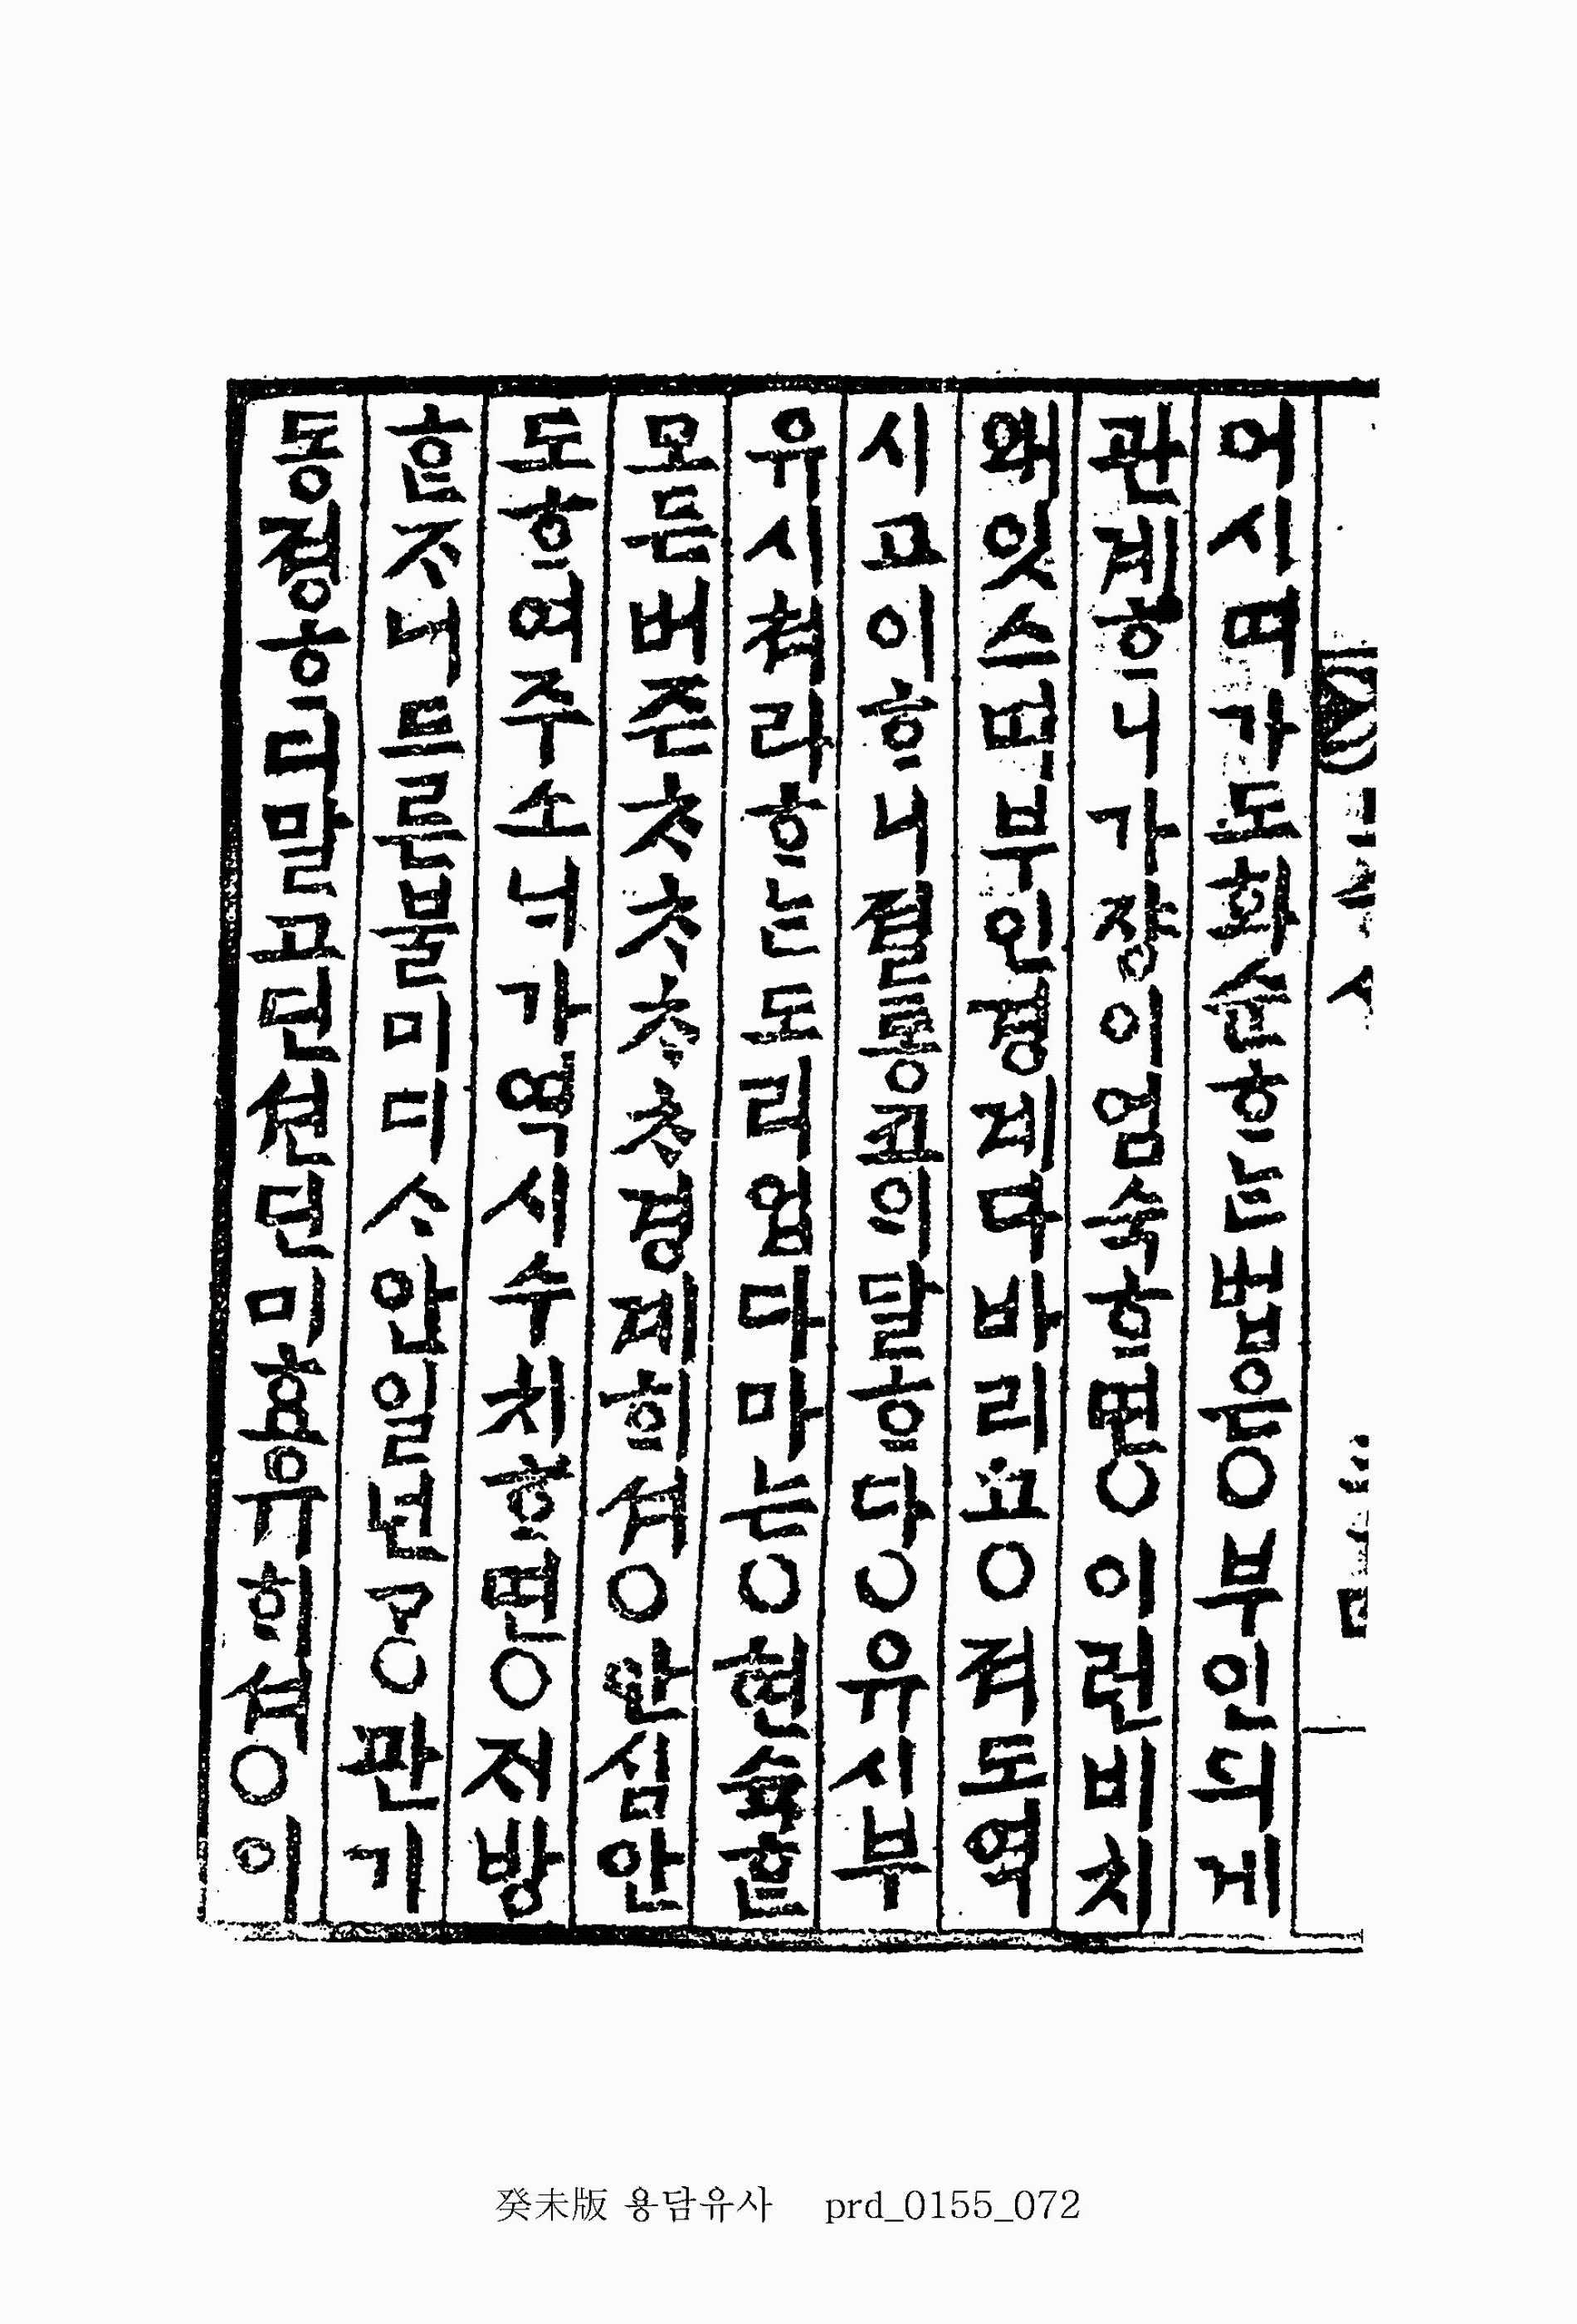 어시며가도화슌ᄒᆞ는법은○부인의게
관계ᄒᆞ니가쟝이엄숙ᄒᆞ면○이런비치
왜잇스며부인경계다바리고○져도역
시고이ᄒᆞ니졀통코의달ᄒᆞ다○유시부
유시쳐라ᄒᆞ는도리업다마는○현슉ᄒᆞᆫ
모든버즌ᄎᆞᄎᆞᄎᆞᄎᆞ경계ᄒᆡ셔○안심안
도ᄒᆞ여주소너가역시수치ᄒᆞ면○저방
ᄒᆞᆫᄌᆞ너드른불미디ᄉᆞ안일년ᄀᆞ○판기
동졍ᄒᆞ디말고던션던미효유ᄒᆡ셔○이
癸未版 용담유사 prd_0155_072